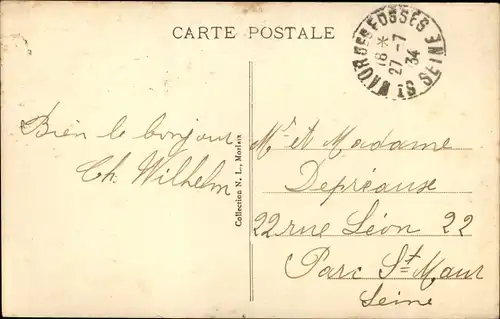 CARTE POSTALE
ST MAUR DES FOSSES SEINE
18 *
27-7
34
Bien le bonjour
Ch. Wilhelm
Collection N. L., Morlaix
Mr et Madame
Depréaux
22 rue Léon 22
Parc St Maur
Seine